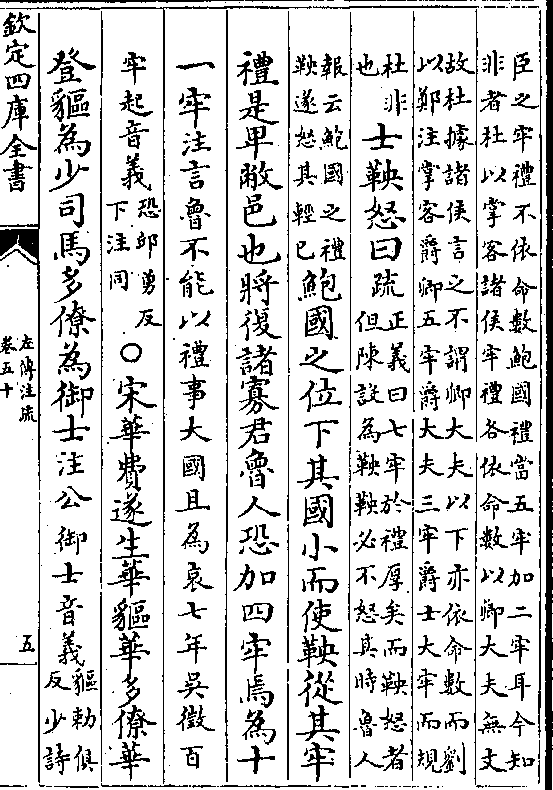 臣之牢禮不依命數鮑國禮當五牢加二牢耳今知
非者杜以掌客諸侯牢禮各依命數以卿大夫無文
故杜據諸侯言之不謂卿大夫以下亦依命數而劉
以鄭注掌客爵卿五牢爵大夫三牢爵士大牢而規
杜非
也
士鞅怒曰疏
正義曰七牢於禮厚矣而鞅怒者
但陳設為鞅鞅必不怒其時魯人
報云鮑國之禮
鞅遂怒其輕已
鮑國之位下其國小而使鞅從其牢
禮是卑敝邑也將復諸寡君魯人恐加四牢焉為十
一牢注言魯不能以禮事大國且為哀七年吳徵百
牢起音義
恐邱勇反
下注同
○宋華費遂生華貙華多僚華
登貙為少司馬多僚為御士注公御士音義
貙勅俱
反少詩
欽定四庫全書
左傳注疏
卷五十
五